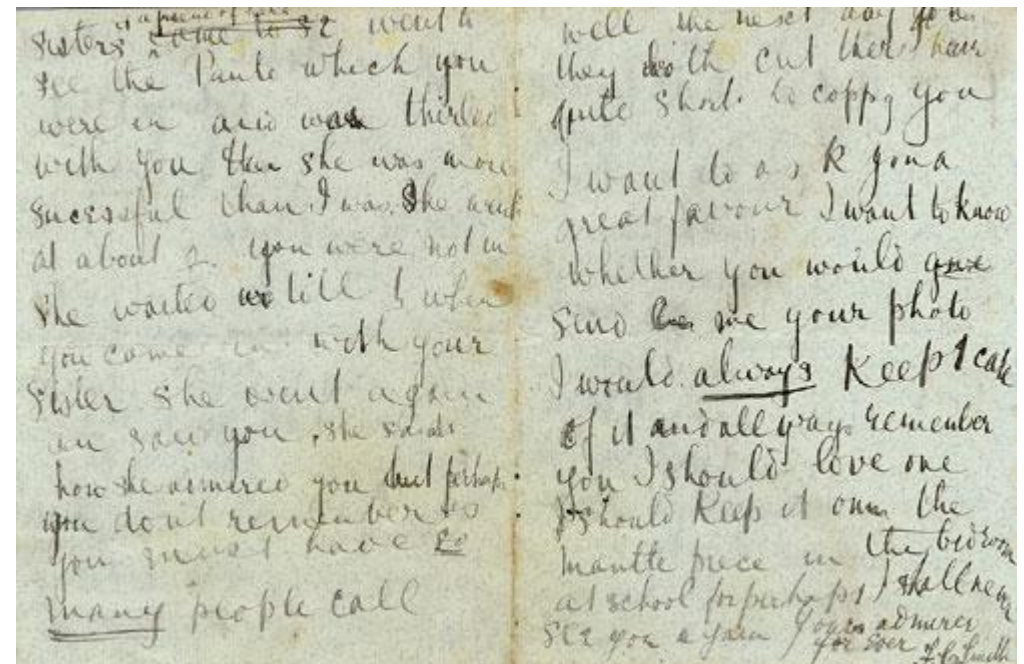 sisters a friend of hers went to
see the Panto which you
were in and was thirled
with you then she was more
sucessful than I was. She went
at about 2. you were not in
she waited till 5 when
you came in with your
sister she went again
an saw you, she said
how she admired you but perhaps
you don't remember as
you must have so
many people call
well the next day
they both cut there hair
quite short to coppy you
I want to ask you a
great favour I want to know
whether you would give
send me your photo
I would always Keep & care
of it and allways remember
you I should love one
I should Keep it on the
mantle piece in the bedroom
at school for perhaps I shall never
see you again Yours admirer
for ever